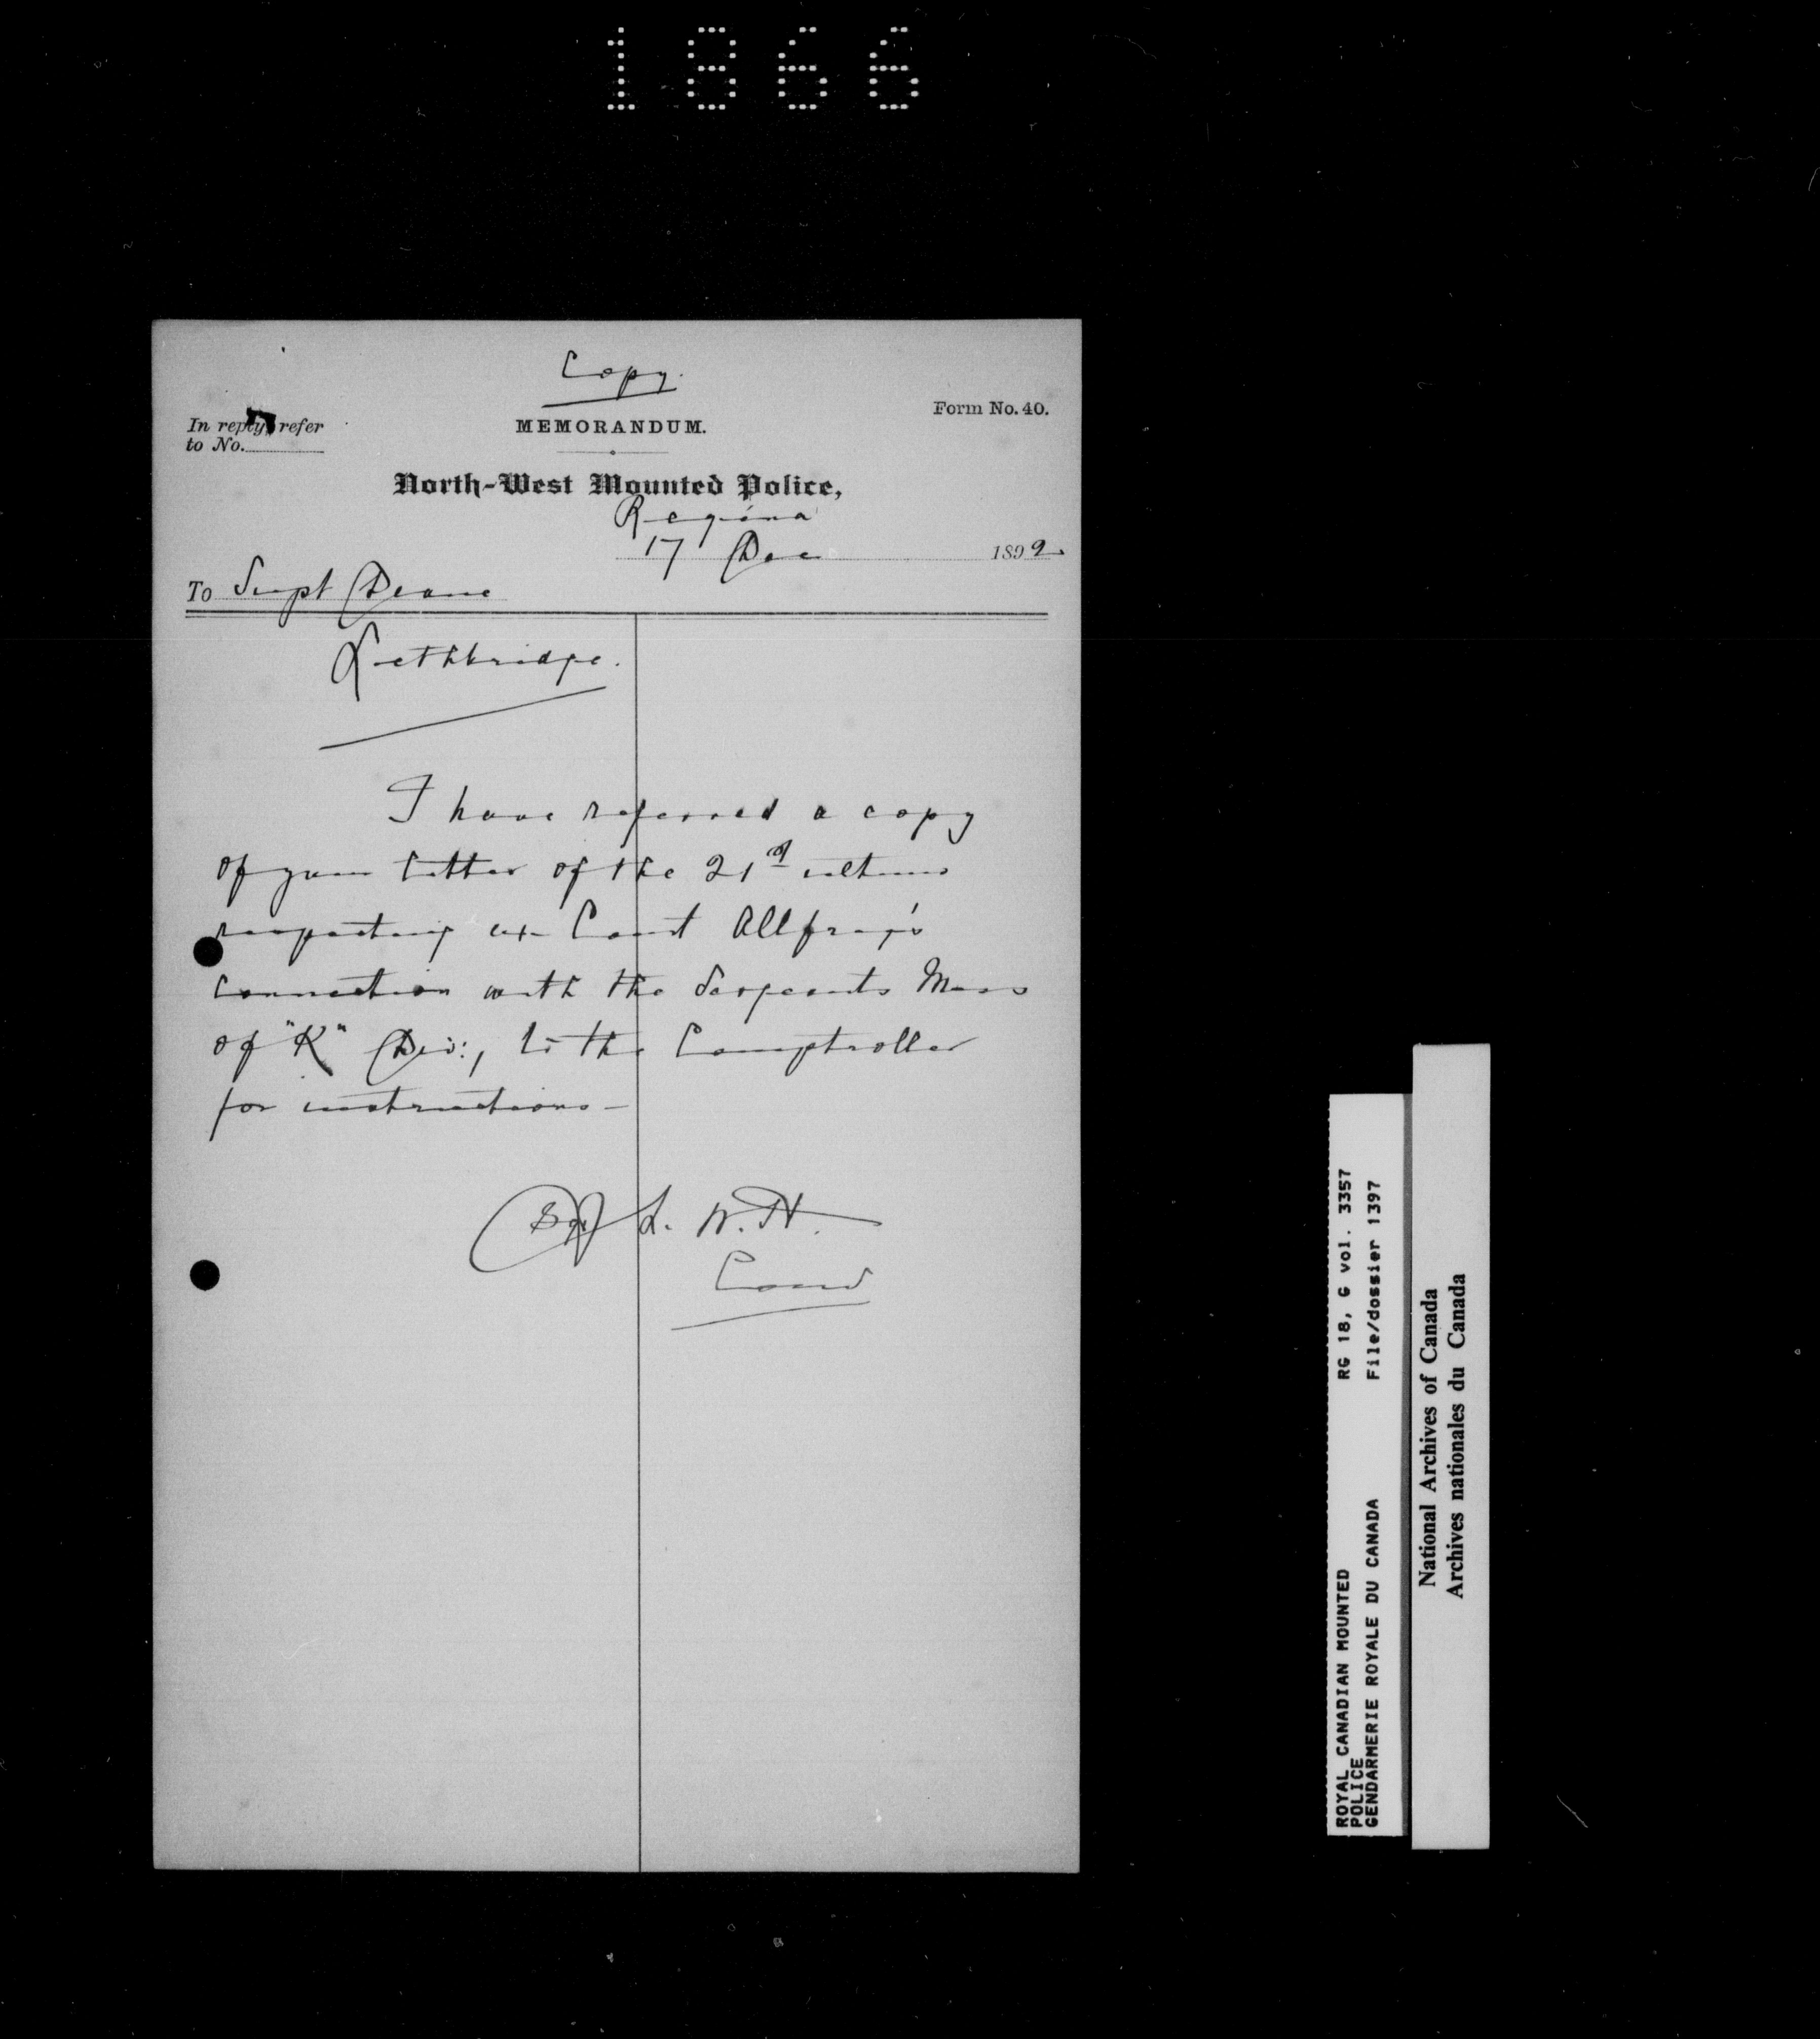 1866
Copy.
Form No. 40.
In reply, refer
to No.
MEMORANDUM.
North-West Mounted Police,
Regina
17 Dec 1892
To Supt Deane
Lethbridge.
I have referred a copy
of your letter of the 21st ultimo
respecting ex-Const Allfrey's
connection with the Sergeants Mess
of "K" Div:, to the Comptroller
for instructions –
(Sgd) L. W. H.
Comr
RG 18, G vol. 3357
File/dossier 1397
ROYAL CANADIAN MOUNTED
POLICE
GENDARMERIE ROYALE DU CANADA
National Archives of Canada
Archives nationales du Canada